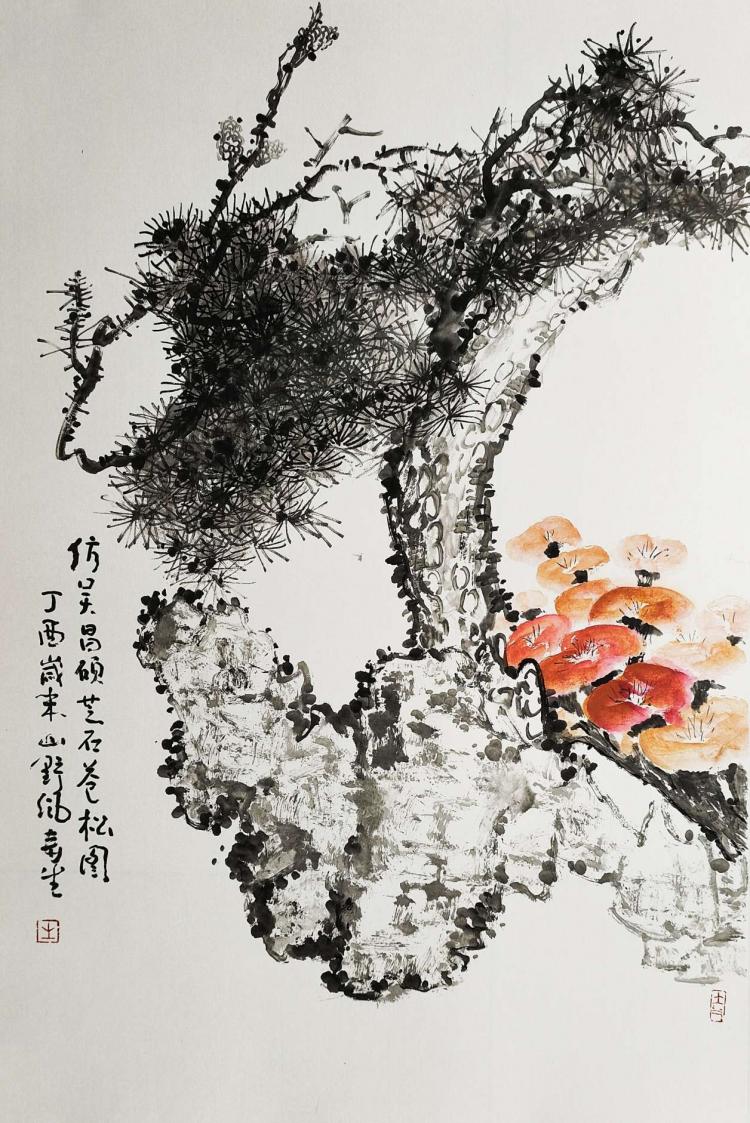 仿吴昌硕芝石苍松图
丁酉岁末山野